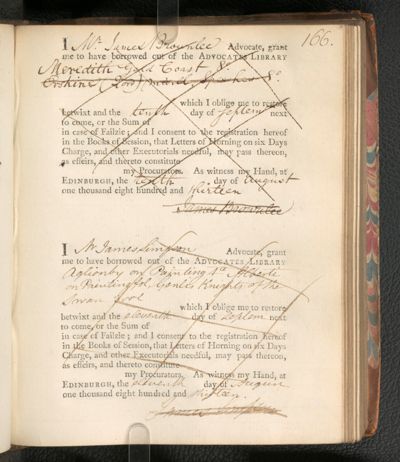 166.
I Mr James Brownlee Advocate, grant
me to have borrowed out of the ADVOCATES LIBRARY
Meredith Gold Coast 8o
Erskine (Lord) 8o
which I oblige me to restore
betwixt and the tenth day of Septem next
to come, or the Sum of
in case of Failzie; and I consent to the registration hereof
in the Books of Session, that Letters of Horning on six Days
Charge, and other Executorials needful, may pass thereon,
as effeirs, and thereto constitute
my Procurators. As witness my Hand, at
EDINBURGH, the tenth day of August
one thousand eight hundred and thirteen
James Brownlee
I Mr James Simpson Advocate, grant
me to have borrowed out of the ADVOCATES LIBRARY
Aglionby on Painting 4o Alberti
on Painting fol Knights of the
Swan fol
which I oblige me to restore
betwixt and the eleventh day of Septem next
to come, or the Sum of
in case of Failzie; and I consent to the registration hereof
in the Books of Session, that Letters of Horning on six Days
Charge, and other Executorials needful, may pass thereon,
as effeirs, and thereto constitute
my Procurators. As witness my Hand, at
EDINBURGH, the eleventh day of August
one thousand eight hundred and thirteen.
James Simpson